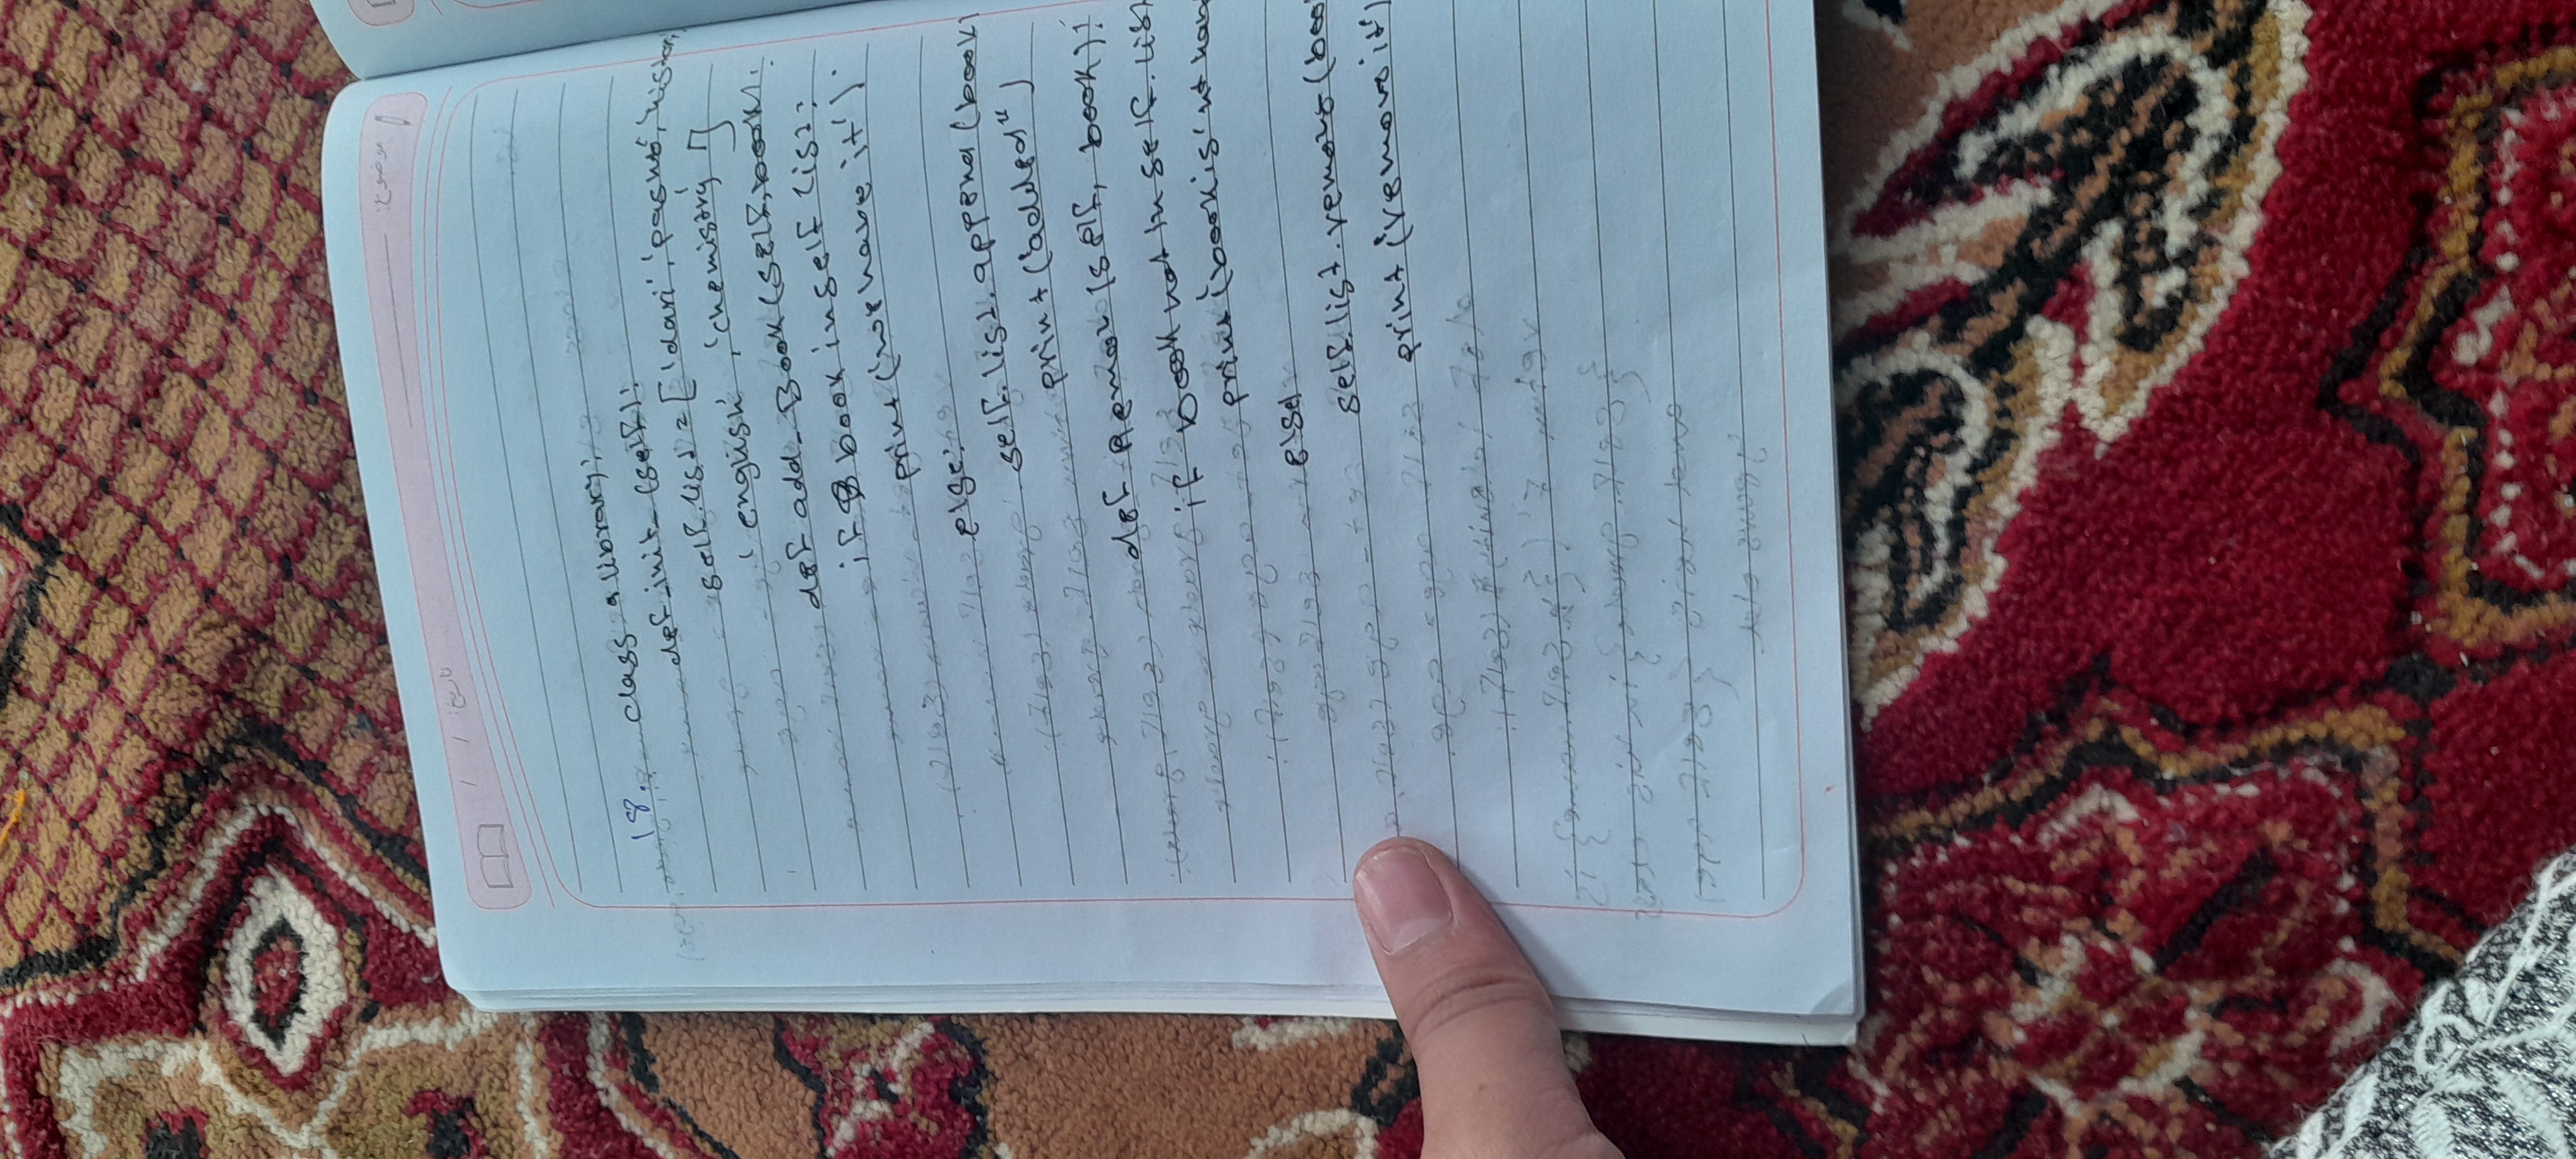 موضوع:
تاریخ: / /
18. class library:
def_init_(self):
self.list = ['dari', 'pashto', 'histor
'english', 'chemistry']
def add_Book(self, book):
if book in self list:
print('we have it')
else:
self.list.append(book)
print("added")
def Remov(self, book):
if book not in self.list
print('book is'nt hav
else
self.list.remove(boo
print('remove it')